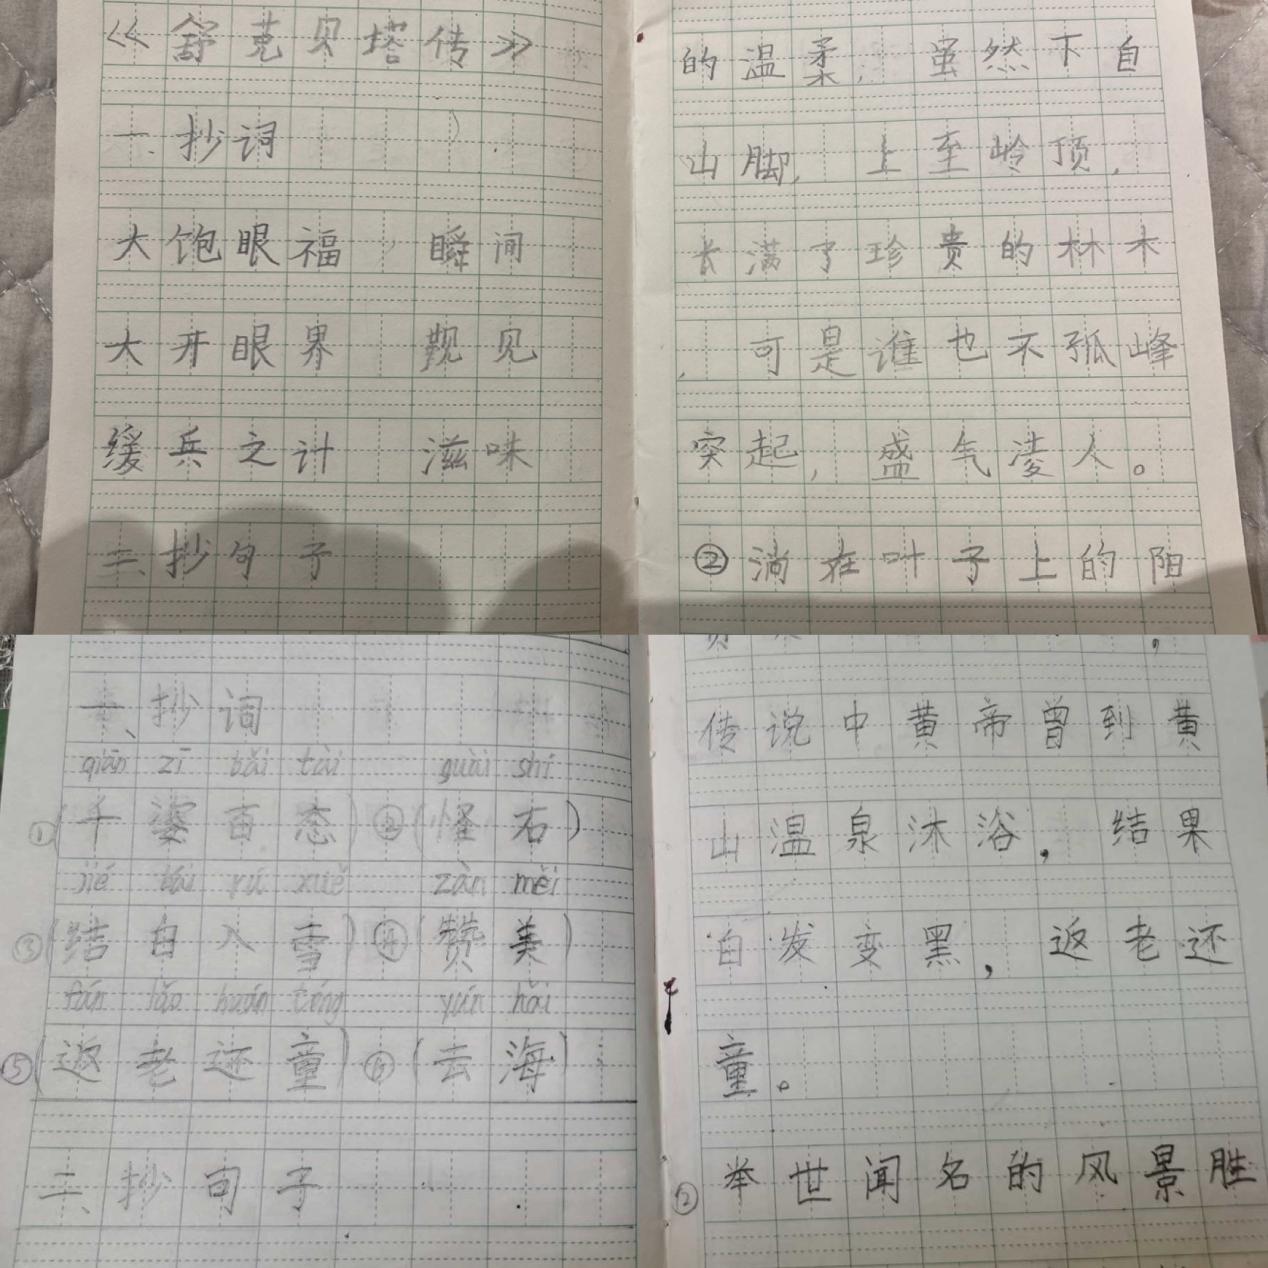 《舒克贝塔传》
一、抄词
大饱眼福，瞬间
大开眼界 觐见
缓兵之计 滋味
二、抄句子
的温柔，虽然下自
山脚，上至岭顶，
长满了珍贵的林木
，可是谁也不孤峰
突起，盛气凌人。
②淌在叶子上的阳
一、抄词
qiān zī bǎi tài guài shí
①(千姿百态)②(怪石)
jié bái rú xuě zàn měi
③(结白入雪)④(赞美)
fǎn lǎo huán tóng yún hǎi
⑤(返老还童)⑥(云海)
二、抄句子
传说中黄帝曾到黄
山温泉沐浴，结果
白发变黑，返老还
童。
②举世闻名的风景胜